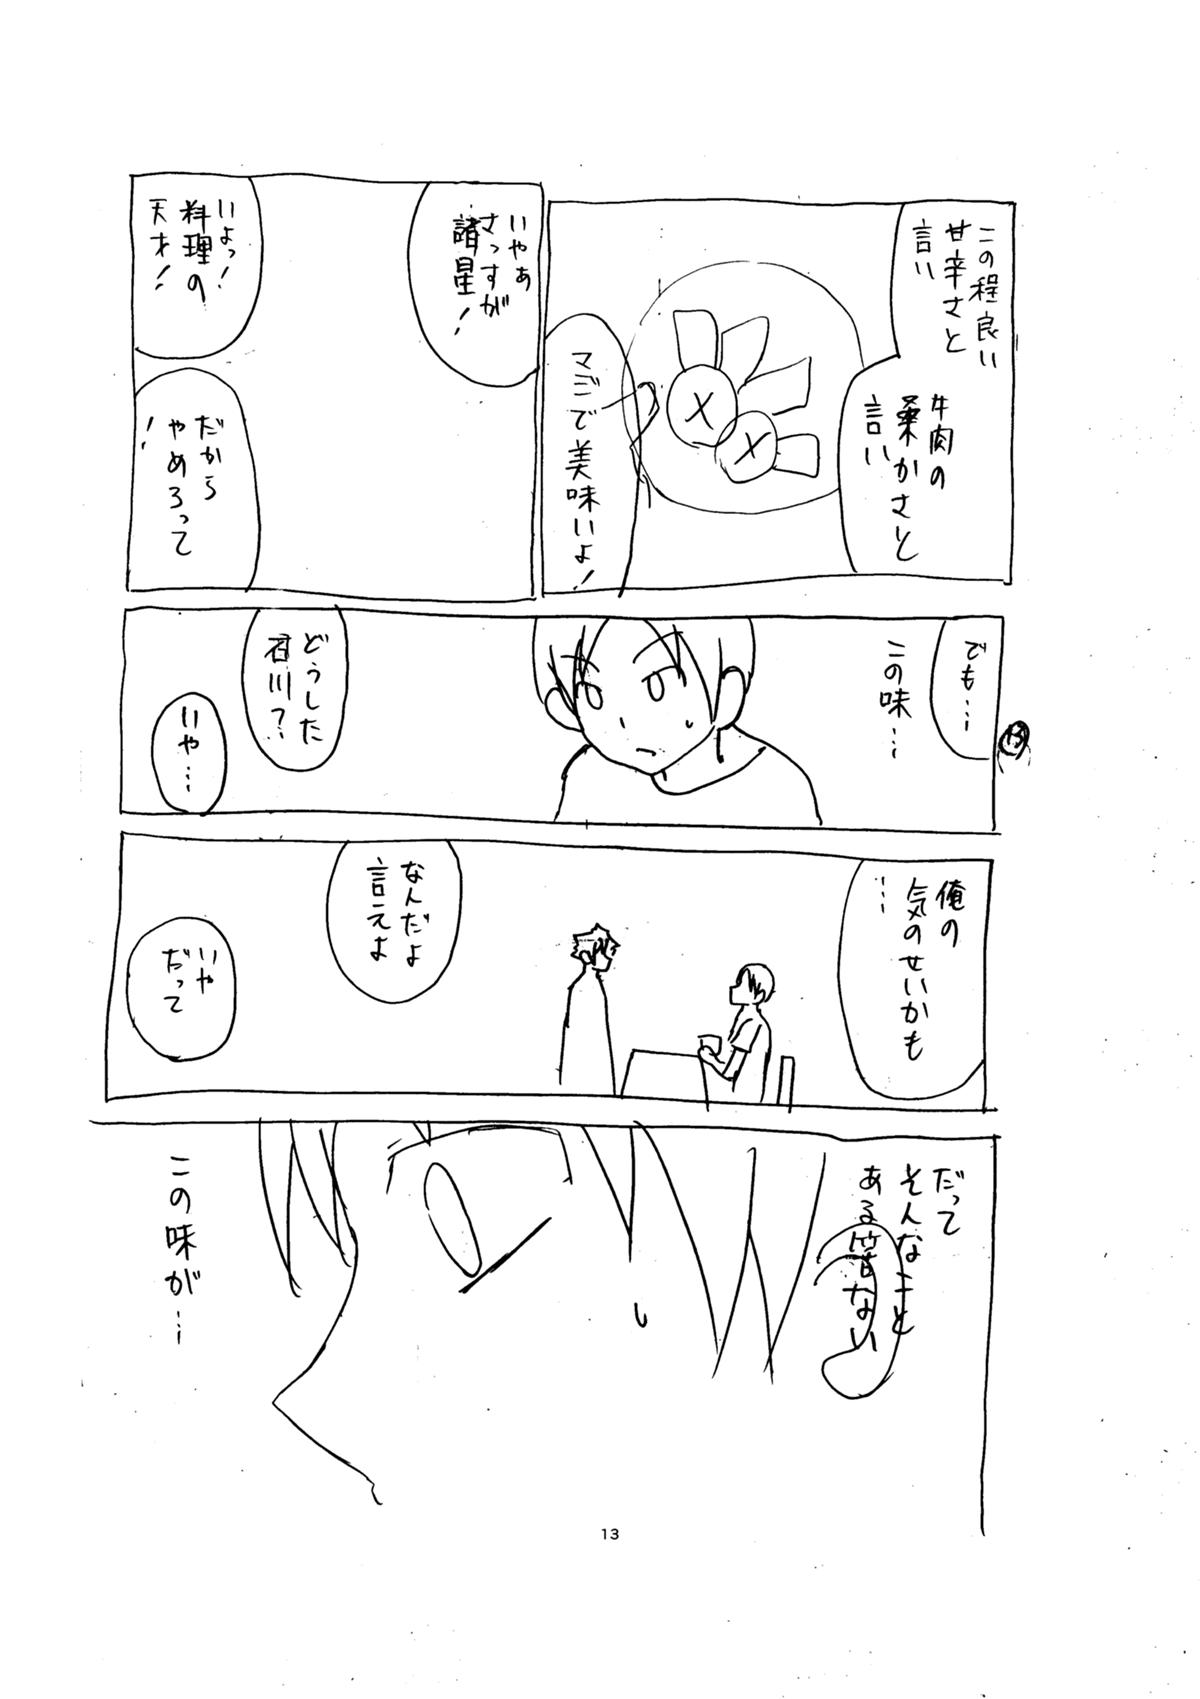 この程良い
甘辛さと
言い
牛肉の
柔かさと
言い
マジで美味いよ!
いやぁ
さっすが
諸星!
いよっ!
料理の
天才!
だから
やめろって
!
でも…
この味…
どうした
君川?
いや…
13
俺の
気のせいかも
…
なんだよ
言えよ
いや
だって
だって
そんなこと
ある筈ない
この味が…
13